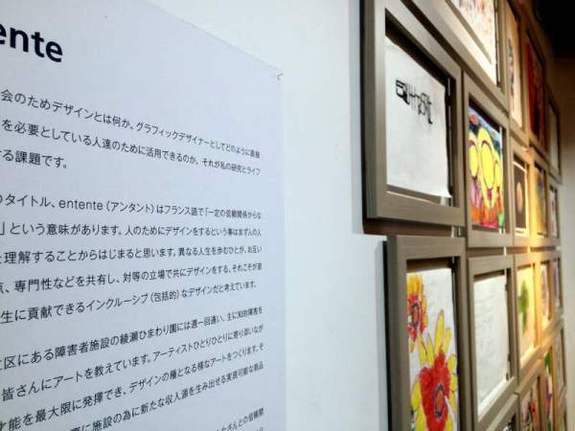 ente
会のためデザインとは何か。グラフィックデザイナーとしてどのように直接
を必要としている人達のために活用できるのか、それが私の研究とライフ
する課題です。
のタイトル、entente(アンタント)はフランス語で「一定の信頼関係からな
」という意味があります。人のためにデザインをするという事はまず人の人
を理解することからはじまると思います。異なる人生を歩むひとが、お互い
点、専門性などを共有し、対等の立場で共にデザインをする、それこそが
生に貢献できるインクルーシブ(包括的)なデザインだと考えています。
区にある障害者施設の綾瀬ひまわり園には週一回通い、主に知的障害を
皆さんにアートを教えています。アーティストひとりひとりに寄り添いながら
才能を最大限に発揮でき、デザインの種となる様なアートをつくります。そ
施設の為に新たな収入源を生み出せる実現可能な製品